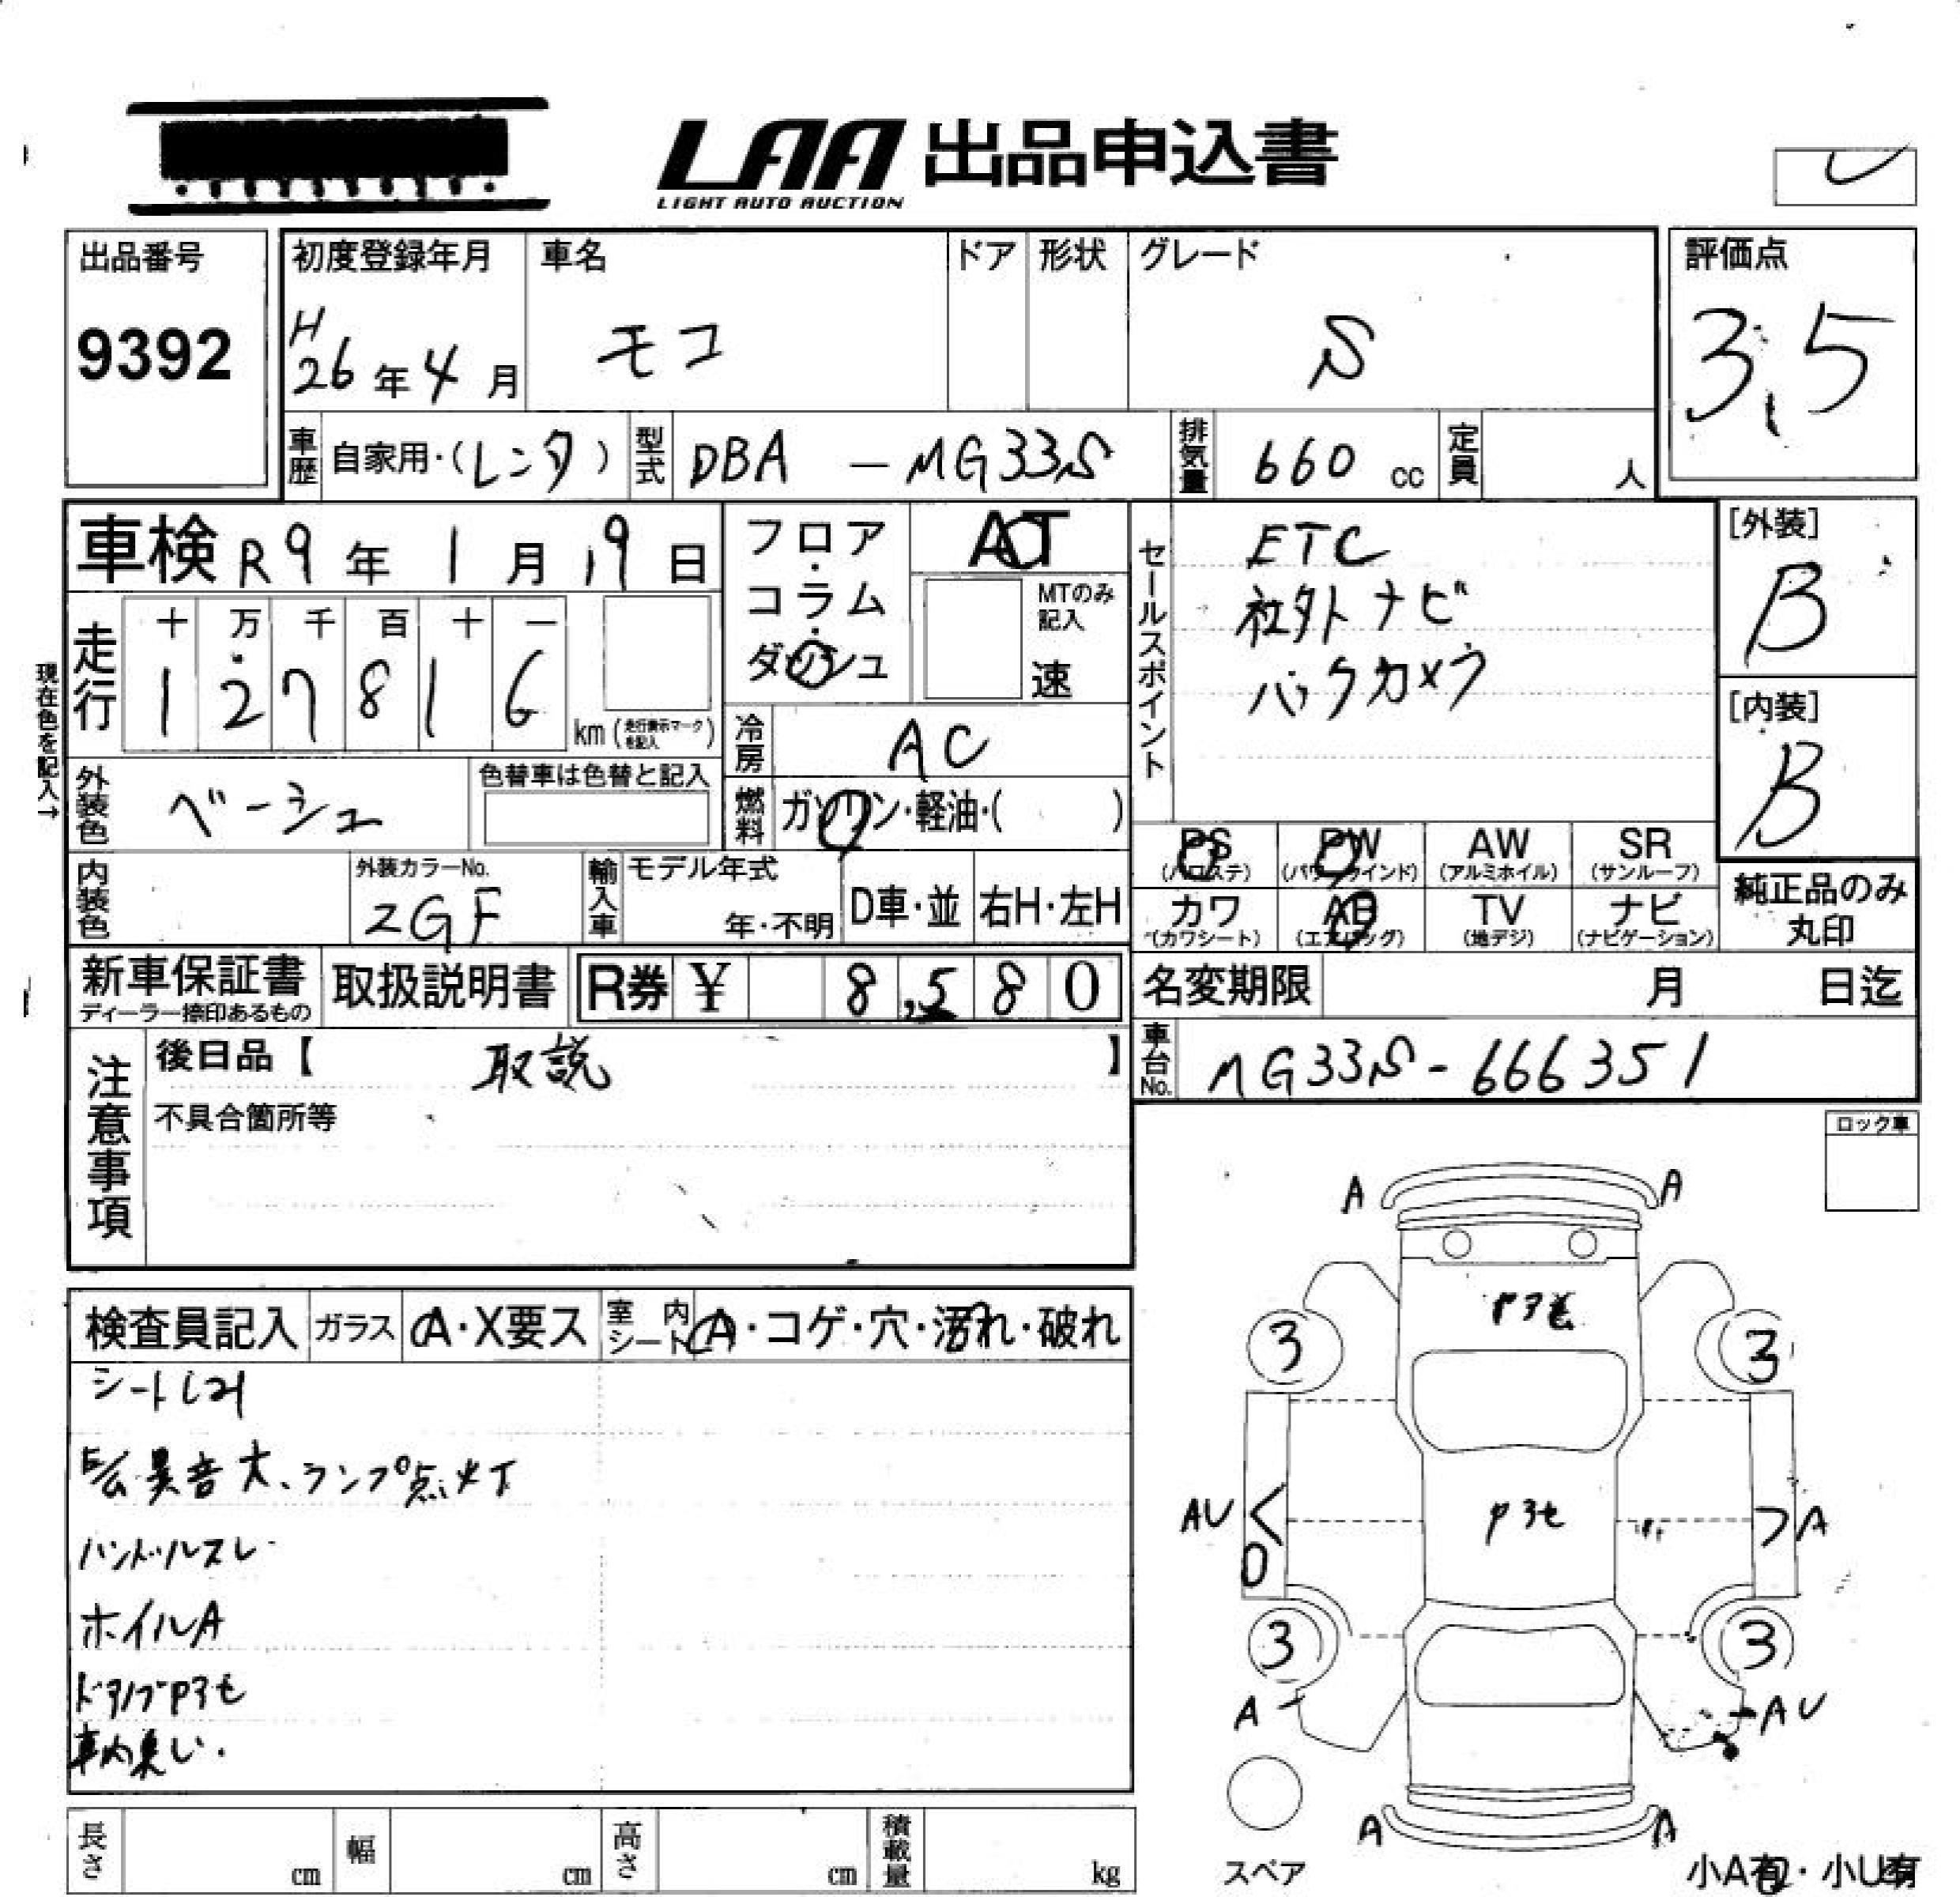 LAA 出品申込書
LIGHT AUTO AUCTION
出品番号
9392
初度登録年月
H
26年4月
車名
モコ
ドア
形状
グレード
S
評価点
3.5
車歴
自家用・(レンタ)
型式
DBA - MG33S
排気量
660 cc
定員
人
車検 R9年1月19日
フロア・コラム・ダッシュ
AT
MTのみ記入
速
セールスポイント
ETC
社外ナビ
バックカメラ
[外装]
B
[内装]
B
現在色を記入→
走行
十 万 千 百 十 一
1 2 7 8 1 6
km (走行表示マークを記入)
冷房
AC
外装色
ベージュ
色替車は色替と記入
燃料
ガソリン・軽油・( )
内装色
外装カラーNo.
ZGF
輸入車
モデル年式
年・不明
D車・並
右H・左H
PS
(パワステ)
PW
(パワーウインド)
AW
(アルミホイル)
SR
(サンルーフ)
カワ
(カワシート)
AB
(エアバッグ)
TV
(地デジ)
ナビ
(ナビゲーション)
純正品のみ丸印
新車保証書
ディーラー捺印あるもの
取扱説明書
R券 ¥ 8,580
名変期限
月 日迄
注意事項
後日品【 取説 】
不具合箇所等
車台No.
MG33S-666351
ロック車
検査員記入
ガラス
A・X要ス
室内シート
A・コゲ・穴・汚れ・破れ
異音大、ランプ点灯
ハンドルスレ
ホイルA
車内臭い.
A A
3 3
AU A
3 3
A AU
A A
スペア
小A有・小U有
長さ
cm
幅
cm
高さ
cm
積載量
kg